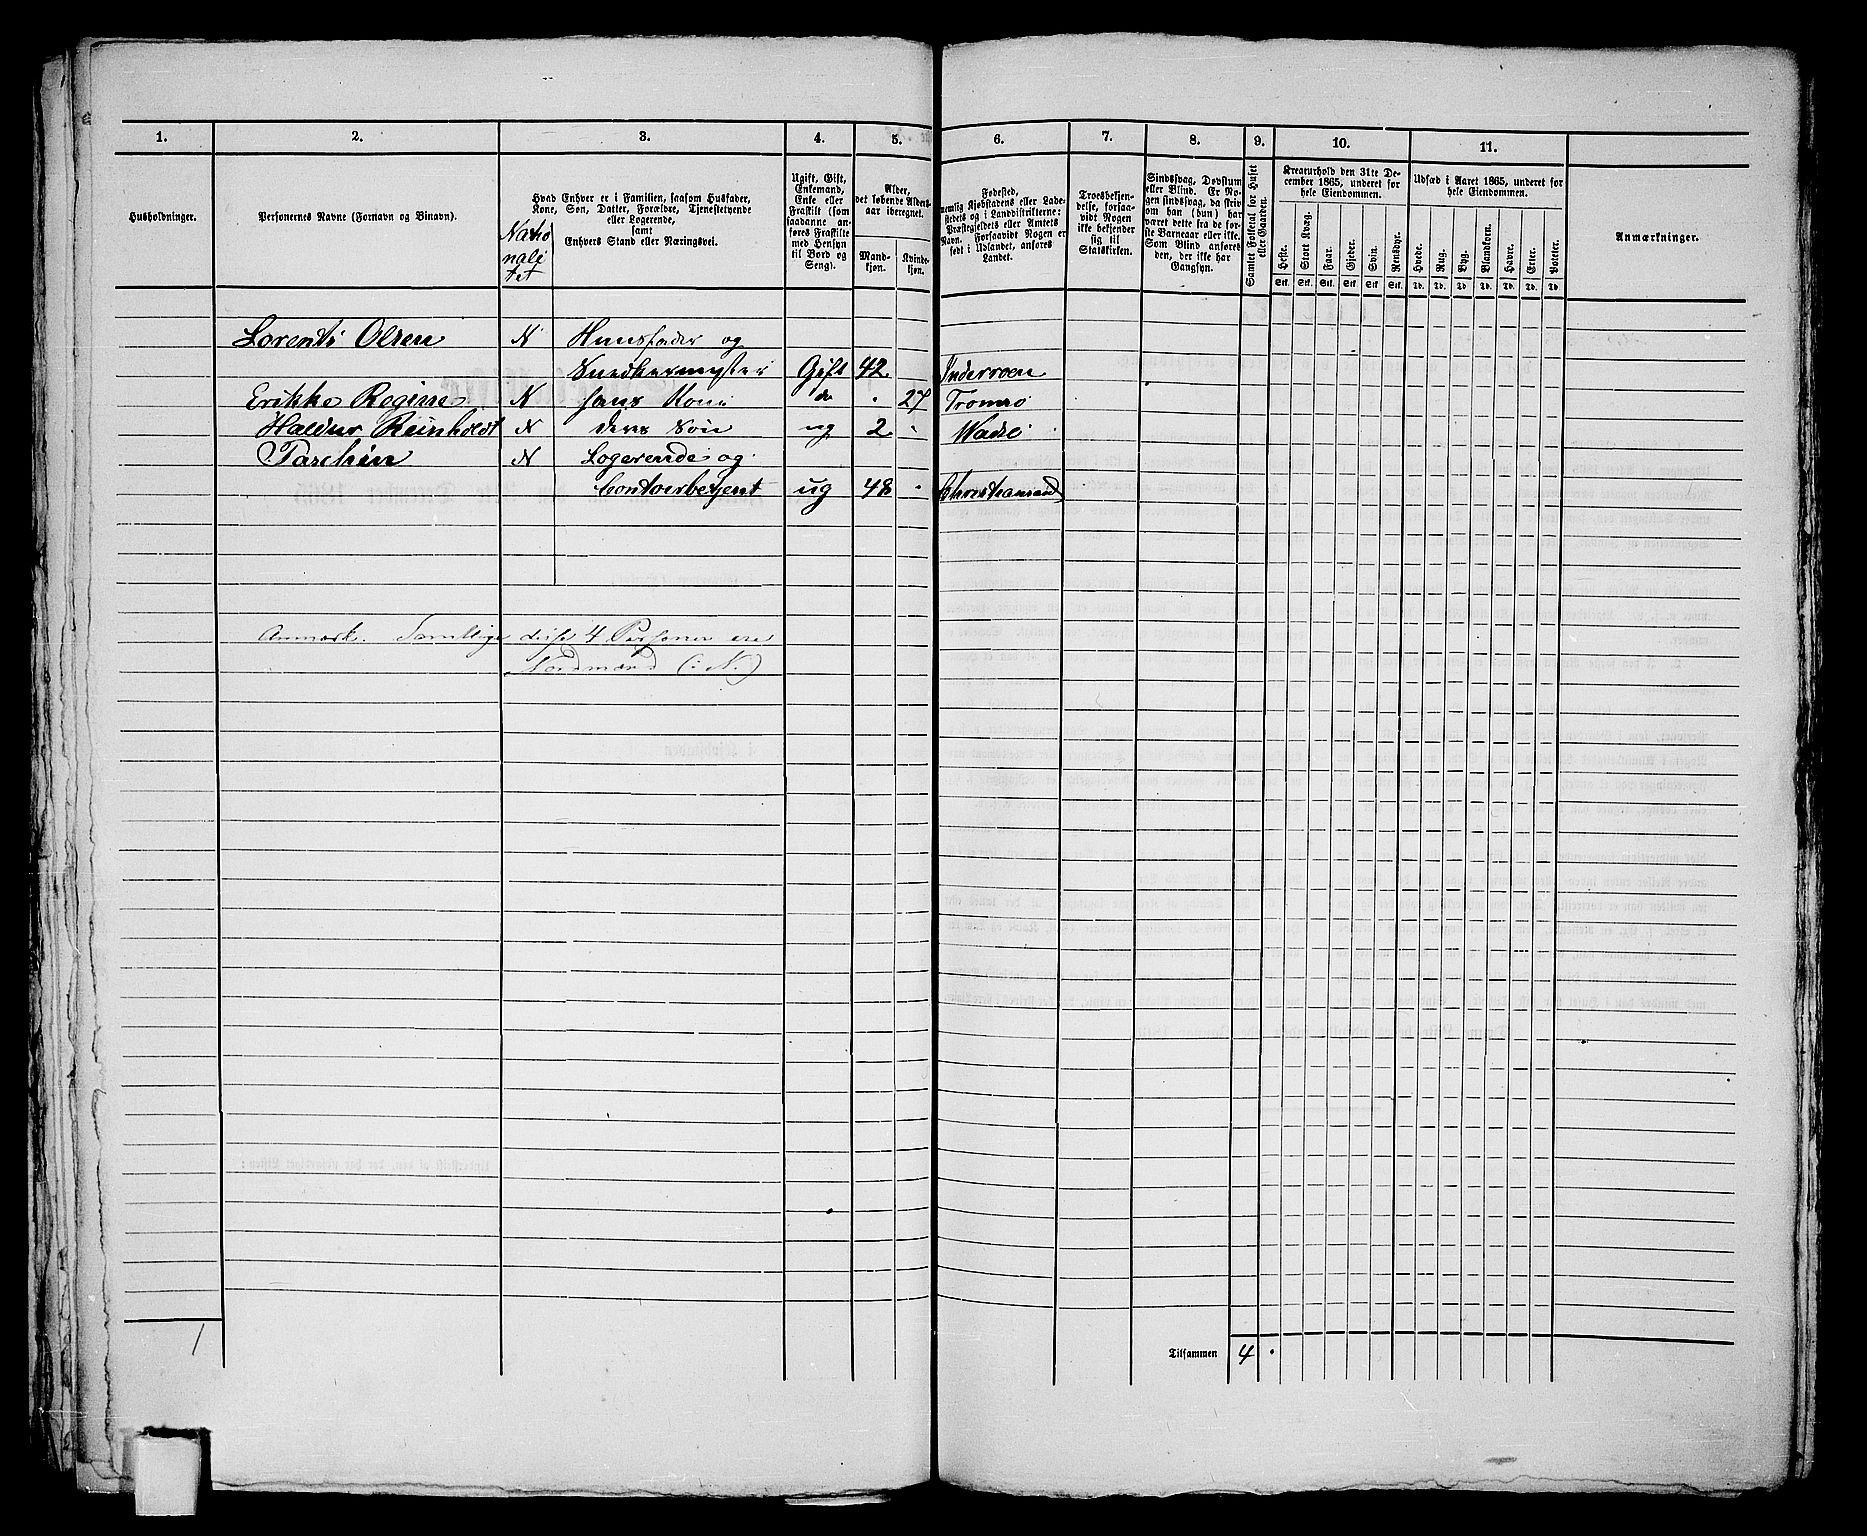 1. 2. 3. 4. 5. 6. 7. 8. 9. 10. 11.
Husholdninger.
Personernes Navne (Fornavn og Binavn).
Hvad Enhver er i Familien, saasom Husfader,
Kone, Søn, Datter, Forældre, Tjenestetyende
eller Logerende,
samt
Enhvers Stand eller Næringsvei.
Natio
nali
tet
Ugift, Gift,
Enkemand,
Enke eller
Fraskilt (som
saadanne an-
føres Fraskilte
med Hensyn
til Bord og
Seng).
Alder,
det løbende Alders-
aar iberegnet.
Mand-
kjøn.
Kvinde-
kjøn.
Fødested,
nemlig Kjøbstadens eller Lade-
stedets og i Landdistrikterne:
Præstegjeldets eller Amtets
Navn. Forsaavidt Nogen er
født i Udlandet, anføres
Landet.
Troesbekjen-
delse, forsaa-
vidt Nogen
ikke bekjender
sig til
Statskirken.
Sindssvag, Døvstum
eller Blind. Er No-
gen sindssvag, da skriv
om han (hun) har
været dette fra de før-
ste Barneaar eller ikke.
Som Blind anføres
den, der ikke har
Gangsyn.
Samlet Folketal for Huset
eller Gaarden.
Kreaturhold den 31te De-
cember 1865, underet for
hele Eiendommen.
Heste. Stort Kvæg. Faar. Gjeder. Svin. Rensdyr.
Stk. Stk. Stk. Stk. Stk. Stk.
Udsæd i Aaret 1865, underet for
hele Eiendommen.
Hvede. Rug. Byg. Blandkorn. Havre. Erter. Poteter.
Td. Td. Td. Td. Td. Td. Td.
Anmærkninger.
Lorents Olsen N Huusfader og
Snedkermester Gift 42 Inderøen
Erikke Regine N hans Kone do . 27 Tromsø
Haldur Reinholdt N deres Søn ug 2 . Wadsø
Paschin N Logerende og
Contoirbetjent ug 48 . Christiansand
Anmærk. Samtlige disse 4 Personer ere
Nordmænd (: N.)
1
Tilsammen 4 .